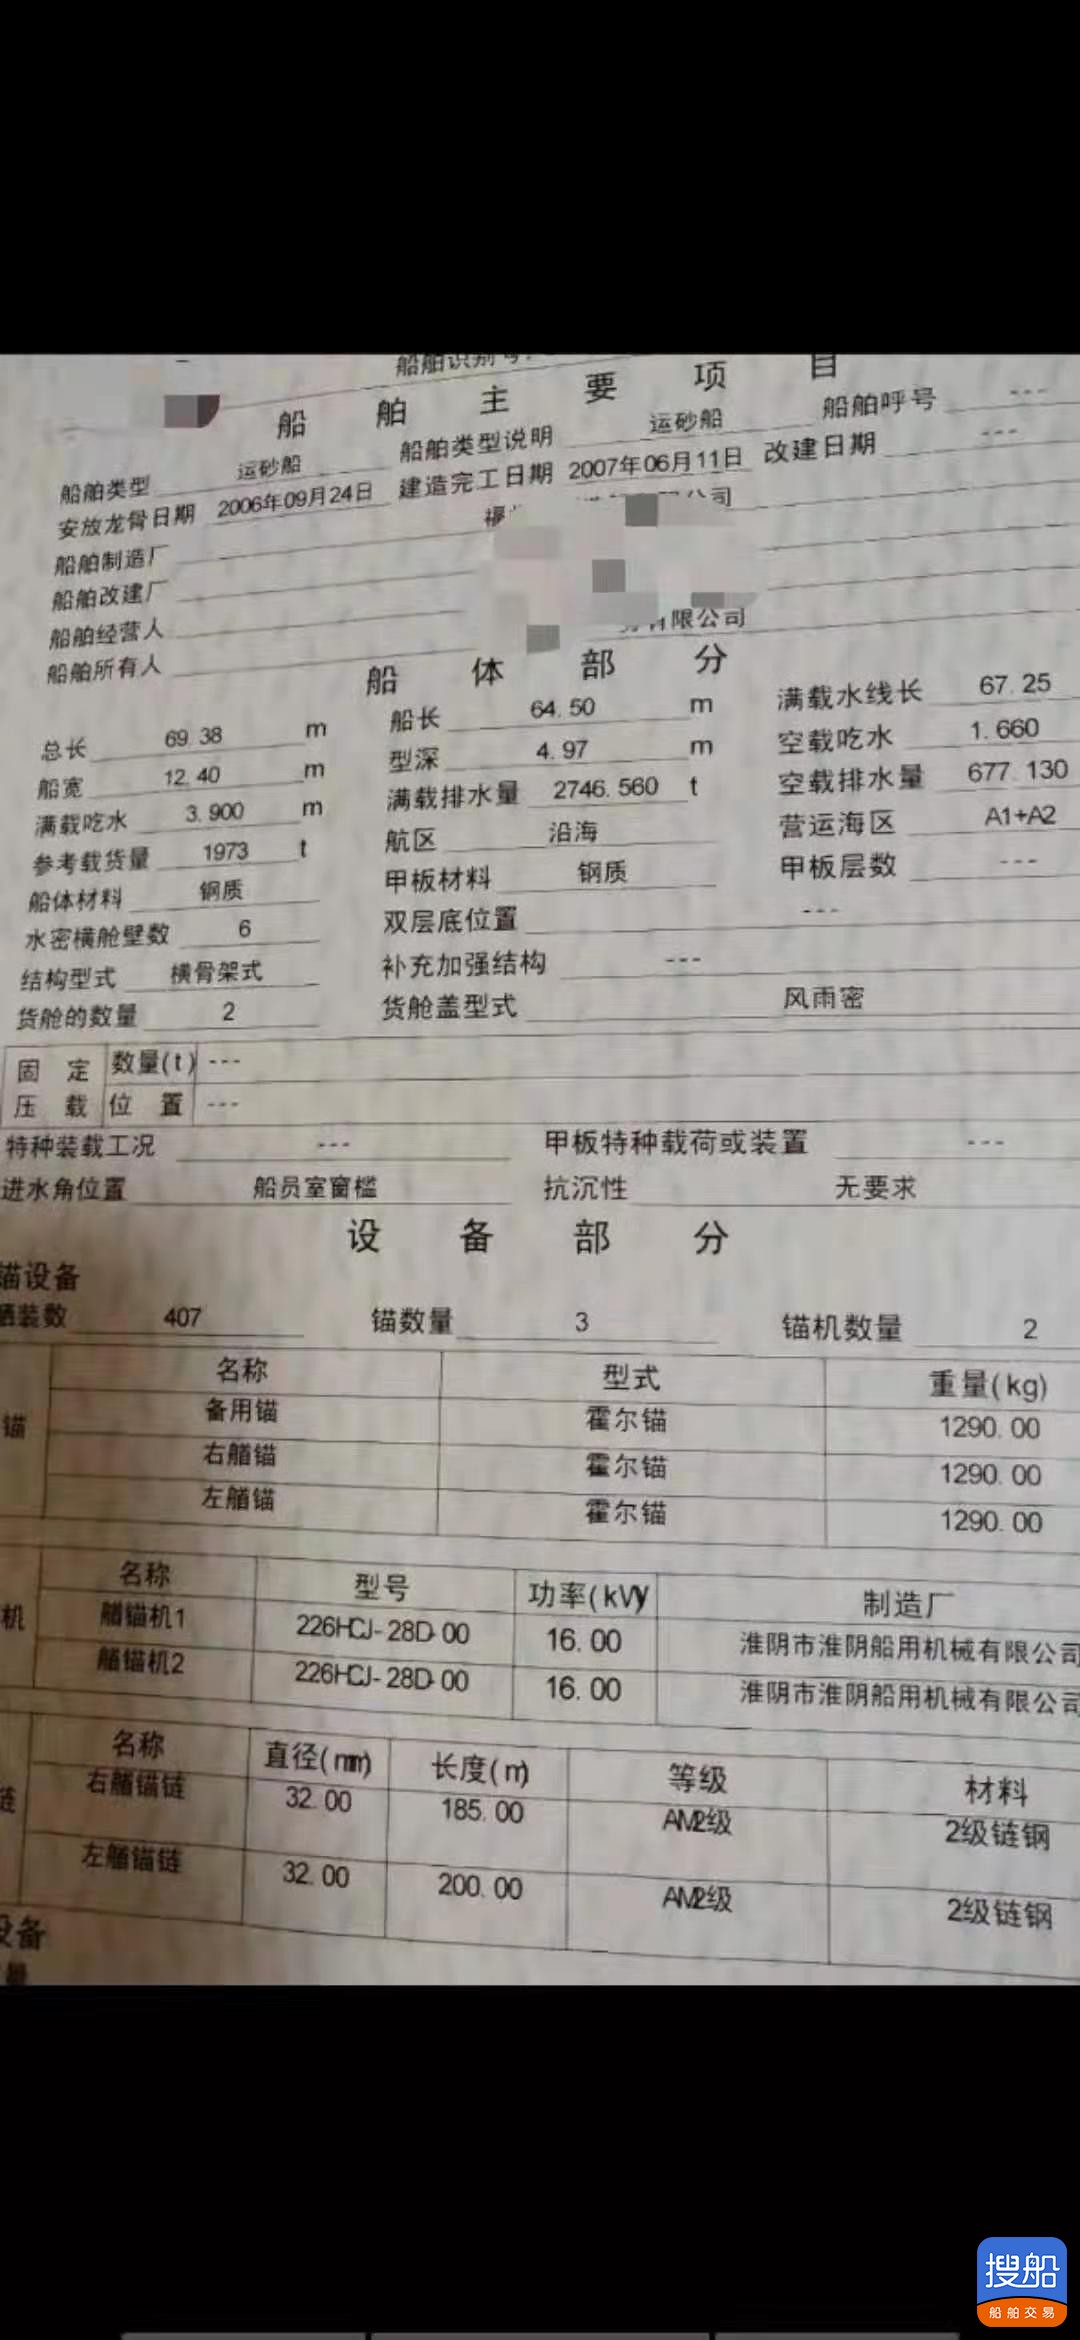 船舶识别号:
船舶主要项目
船舶类型 运砂船 船舶类型说明 运砂船 船舶呼号 ---
安放龙骨日期 2006年09月24日 建造完工日期 2007年06月11日 改建日期 ---
船舶制造厂 福 公司
船舶改建厂
船舶经营人
船舶所有人 有限公司
船体部分
总长 69.38 m 船长 64.50 m 满载水线长 67.25
船宽 12.40 m 型深 4.97 m 空载吃水 1.660
满载吃水 3.900 m 满载排水量 2746.560 t 空载排水量 677.130
参考载货量 1973 t 航区 沿海 营运海区 A1+A2
船体材料 钢质 甲板材料 钢质 甲板层数 ---
水密横舱壁数 6 双层底位置 ---
结构型式 横骨架式 补充加强结构 ---
货舱的数量 2 货舱盖型式 风雨密
固定 数量(t) ---
压载 位置 ---
特种装载工况 --- 甲板特种载荷或装置 ---
进水角位置 船员室窗槛 抗沉性 无要求
设备部分
锚设备
舾装数 407 锚数量 3 锚机数量 2
名称 型式 重量(kg)
锚 备用锚 霍尔锚 1290.00
右艏锚 霍尔锚 1290.00
左艏锚 霍尔锚 1290.00
名称 型号 功率(kW) 制造厂
机 艏锚机1 226HCJ-28D-00 16.00 淮阴市淮阴船用机械有限公司
艏锚机2 226HCJ-28D-00 16.00 淮阴市淮阴船用机械有限公司
名称 直径(mm) 长度(m) 等级 材料
链 右艏锚链 32.00 185.00 AM2级 2级链钢
左艏锚链 32.00 200.00 AM2级 2级链钢
设备
量
搜船
船舶交易